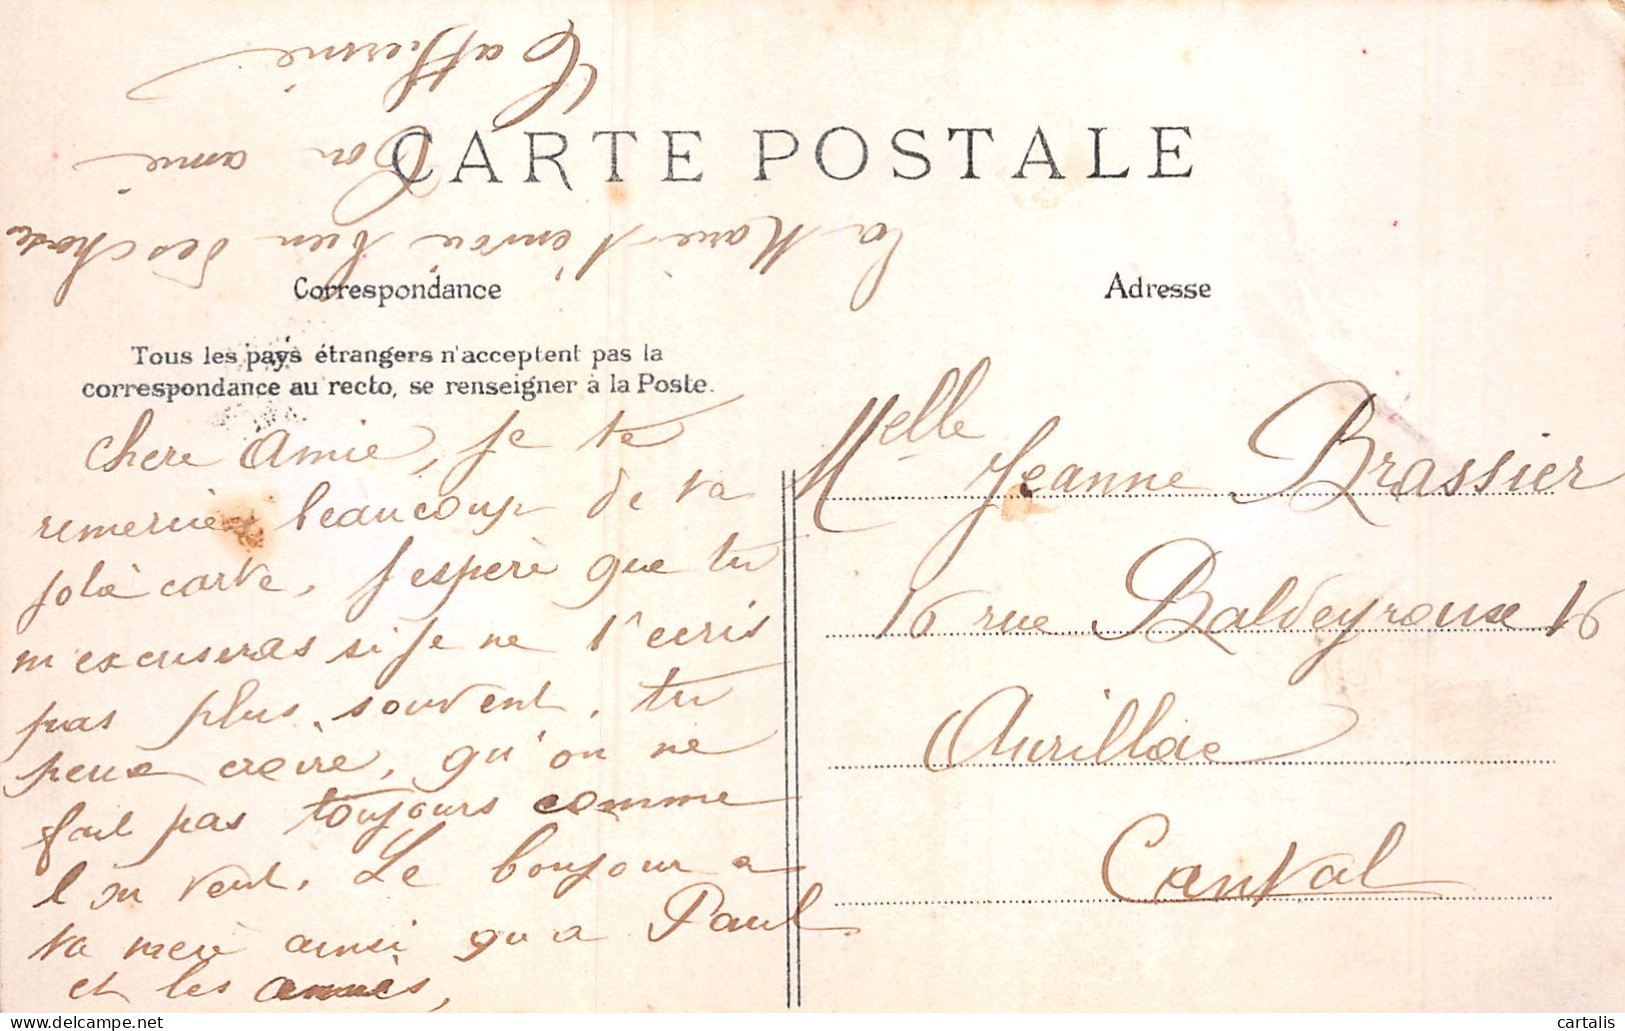 CARTE POSTALE
Correspondance
Tous les pays étrangers n'acceptent pas la
correspondance au recto, se renseigner à la Poste.
chere Amie, je te
remercie beaucoup de ta
jolie carte, j espère que tu
m'excuseras si je ne t'ecris
pas plus souvent, tu
peux croire, qu'on ne
fait pas toujours comme
l on veut. Le bonjour a
ta mere ainsi qu a Paul
et les amies,
la Marie t'envoie bien des chose
Ton amie
Catherine
Adresse
Melle Jeanne Brassier
16 rue Baldeyroux 16
Aurillac
Cantal
cartalis